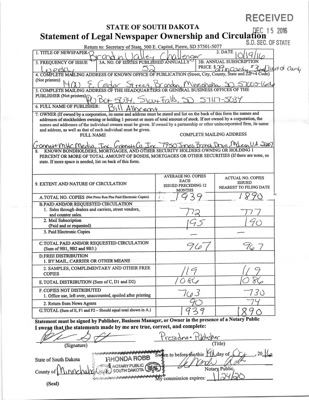 RECEIVED
DEC 15 2016
S.D. SEC. OF STATE
STATE OF SOUTH DAKOTA
Statement of Legal Newspaper Ownership and Circulation
Return to: Secretary of State, 500 E. Capitol, Pierre, SD 57501-5077
1. TITLE OF NEWSPAPER Brandon Valley Challenger
2. DATE 10/19/16
3. FREQUENCY OF ISSUE Weekly
3A. NO. OF ISSUES PUBLISHED ANNUALLY 52
3B. ANNUAL SUBSCRIPTION PRICE
4. COMPLETE MAILING ADDRESS OF KNOWN OFFICE OF PUBLICATION (Street, City, County, State and ZIP+4 Code)
(Not printers) E Cedar Street, Brandon, Minnehaha, SD
5. COMPLETE MAILING ADDRESS OF THE HEADQUARTERS OR GENERAL BUSINESS OFFICES OF THE PUBLISHER (Not printers)
PO Box 5034, Sioux Falls, SD 57117-5034
6. FULL NAME OF PUBLISHER: Bill Albrecht
7. OWNER (If owned by a corporation, its name and address must be stated and list on the back of this form the names and
addresses of stockholders owning or holding 1 percent or more of total amount of stock. If not owned by a corporation, the
names and addresses of individual owners must be given. If owned by a partnership or other unincorporated firm, its name
and address, as well as that of each individual must be given.
FULL NAME COMPLETE MAILING ADDRESS
Gannett Co Inc 7950 Jones Branch Drive, McLean, VA
8. KNOWN BONDHOLDERS, MORTGAGEES, AND OTHER SECURITY HOLDERS OWNING OR HOLDING 1
PERCENT OR MORE OF TOTAL AMOUNT OF BONDS, MORTGAGES OR OTHER SECURITIES (If there are none, so
state. If more space is needed, list on back of this form.
9. EXTENT AND NATURE OF CIRCULATION
AVERAGE NO. COPIES EACH ISSUED PRECEDING 12 MONTHS
ACTUAL NO. COPIES ISSUED NEAREST TO FILING DATE
A. TOTAL NO. COPIES (Net Press Run Plus Paid Electronic Copies) 1939 1890
B. PAID AND/OR REQUESTED CIRCULATION
1. Sales through dealers and carriers, street vendors, and counter sales. 772 777
2. Mail Subscription (Paid and or requested) 195 190
3. Paid Electronic Copies
C. TOTAL PAID AND/OR REQUESTED CIRCULATION (Sum of 9B1, 9B2 and 9B3.) 967 967
D. FREE DISTRIBUTION
1. BY MAIL, CARRIER OR OTHER MEANS
2. SAMPLES, COMPLIMENTARY AND OTHER FREE COPIES 119 119
E. TOTAL DISTRIBUTION (Sum of C, D1 and D2) 1086 1086
F. COPIES NOT DISTRIBUTED
1. Office use, left over, unaccounted, spoiled after printing 763 730
2. Return from News Agents 90 74
G. TOTAL (Sum of E, F1 and F2 - Should equal total shown in A.) 1939 1890
Statement must be signed by Publisher, Business Manager, or Owner in the presence of a Notary Public
I swear that the statements made by me are true, correct, and complete:
President + Publisher
(Signature) (Title)
State of South Dakota
County of Minnehaha
RHONDA ROBB
NOTARY PUBLIC
SOUTH DAKOTA
Sworn to before me this day of Oct, 2016
Notary Public
My commission expires:
(Seal)